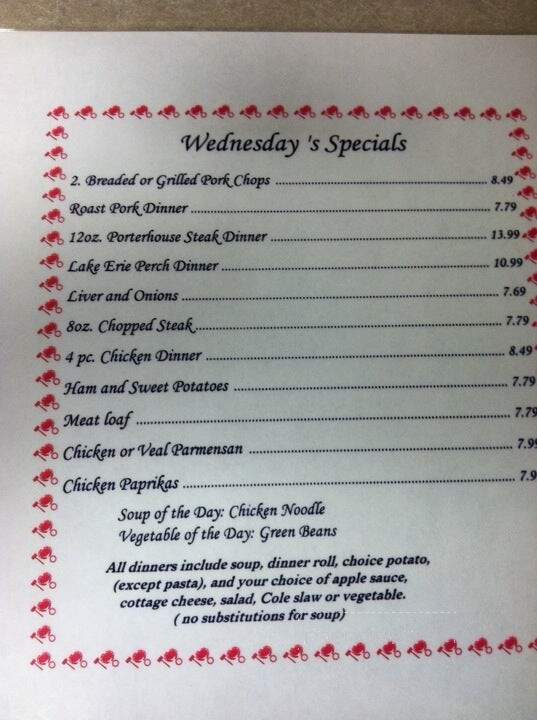 Wednesday 's Specials
2. Breaded or Grilled Pork Chops ........ 8.49
Roast Pork Dinner ........ 7.79
12oz. Porterhouse Steak Dinner ........ 13.99
Lake Erie Perch Dinner ........ 10.99
Liver and Onions ........ 7.69
8oz. Chopped Steak ........ 7.79
4 pc. Chicken Dinner ........ 8.49
Ham and Sweet Potatoes ........ 7.79
Meat loaf ........ 7.79
Chicken or Veal Parmensan ........ 7.99
Chicken Paprikas ........ 7.9
Soup of the Day: Chicken Noodle
Vegetable of the Day: Green Beans
All dinners include soup, dinner roll, choice potato,
(except pasta), and your choice of apple sauce,
cottage cheese, salad, Cole slaw or vegetable.
( no substitutions for soup}